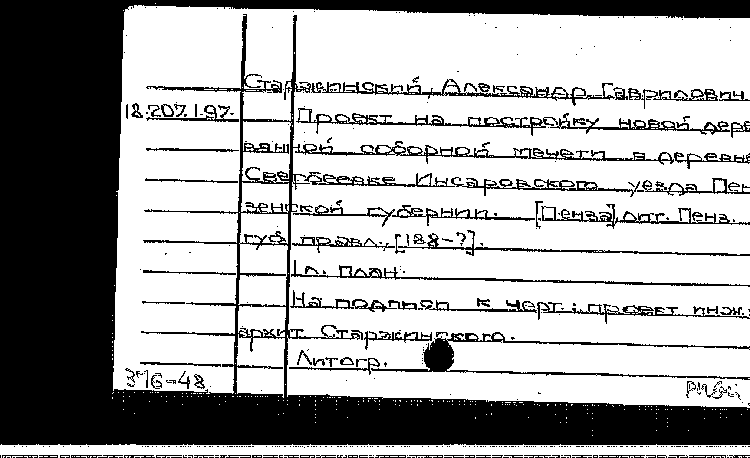 Старжинский, Александр Гаврилович.
18.207.1.97. Проект на постройку новой дере
вянной соборной мечети в деревне
Свербеевке Инсаровского уезда Пен
зенской губернии. [Пенза], лит. Пенз.
губ. правл., [188-?].
1 л. план.
На подлинн к черт.: проект инж.
архит. Старжинского.
Литогр.
376-48